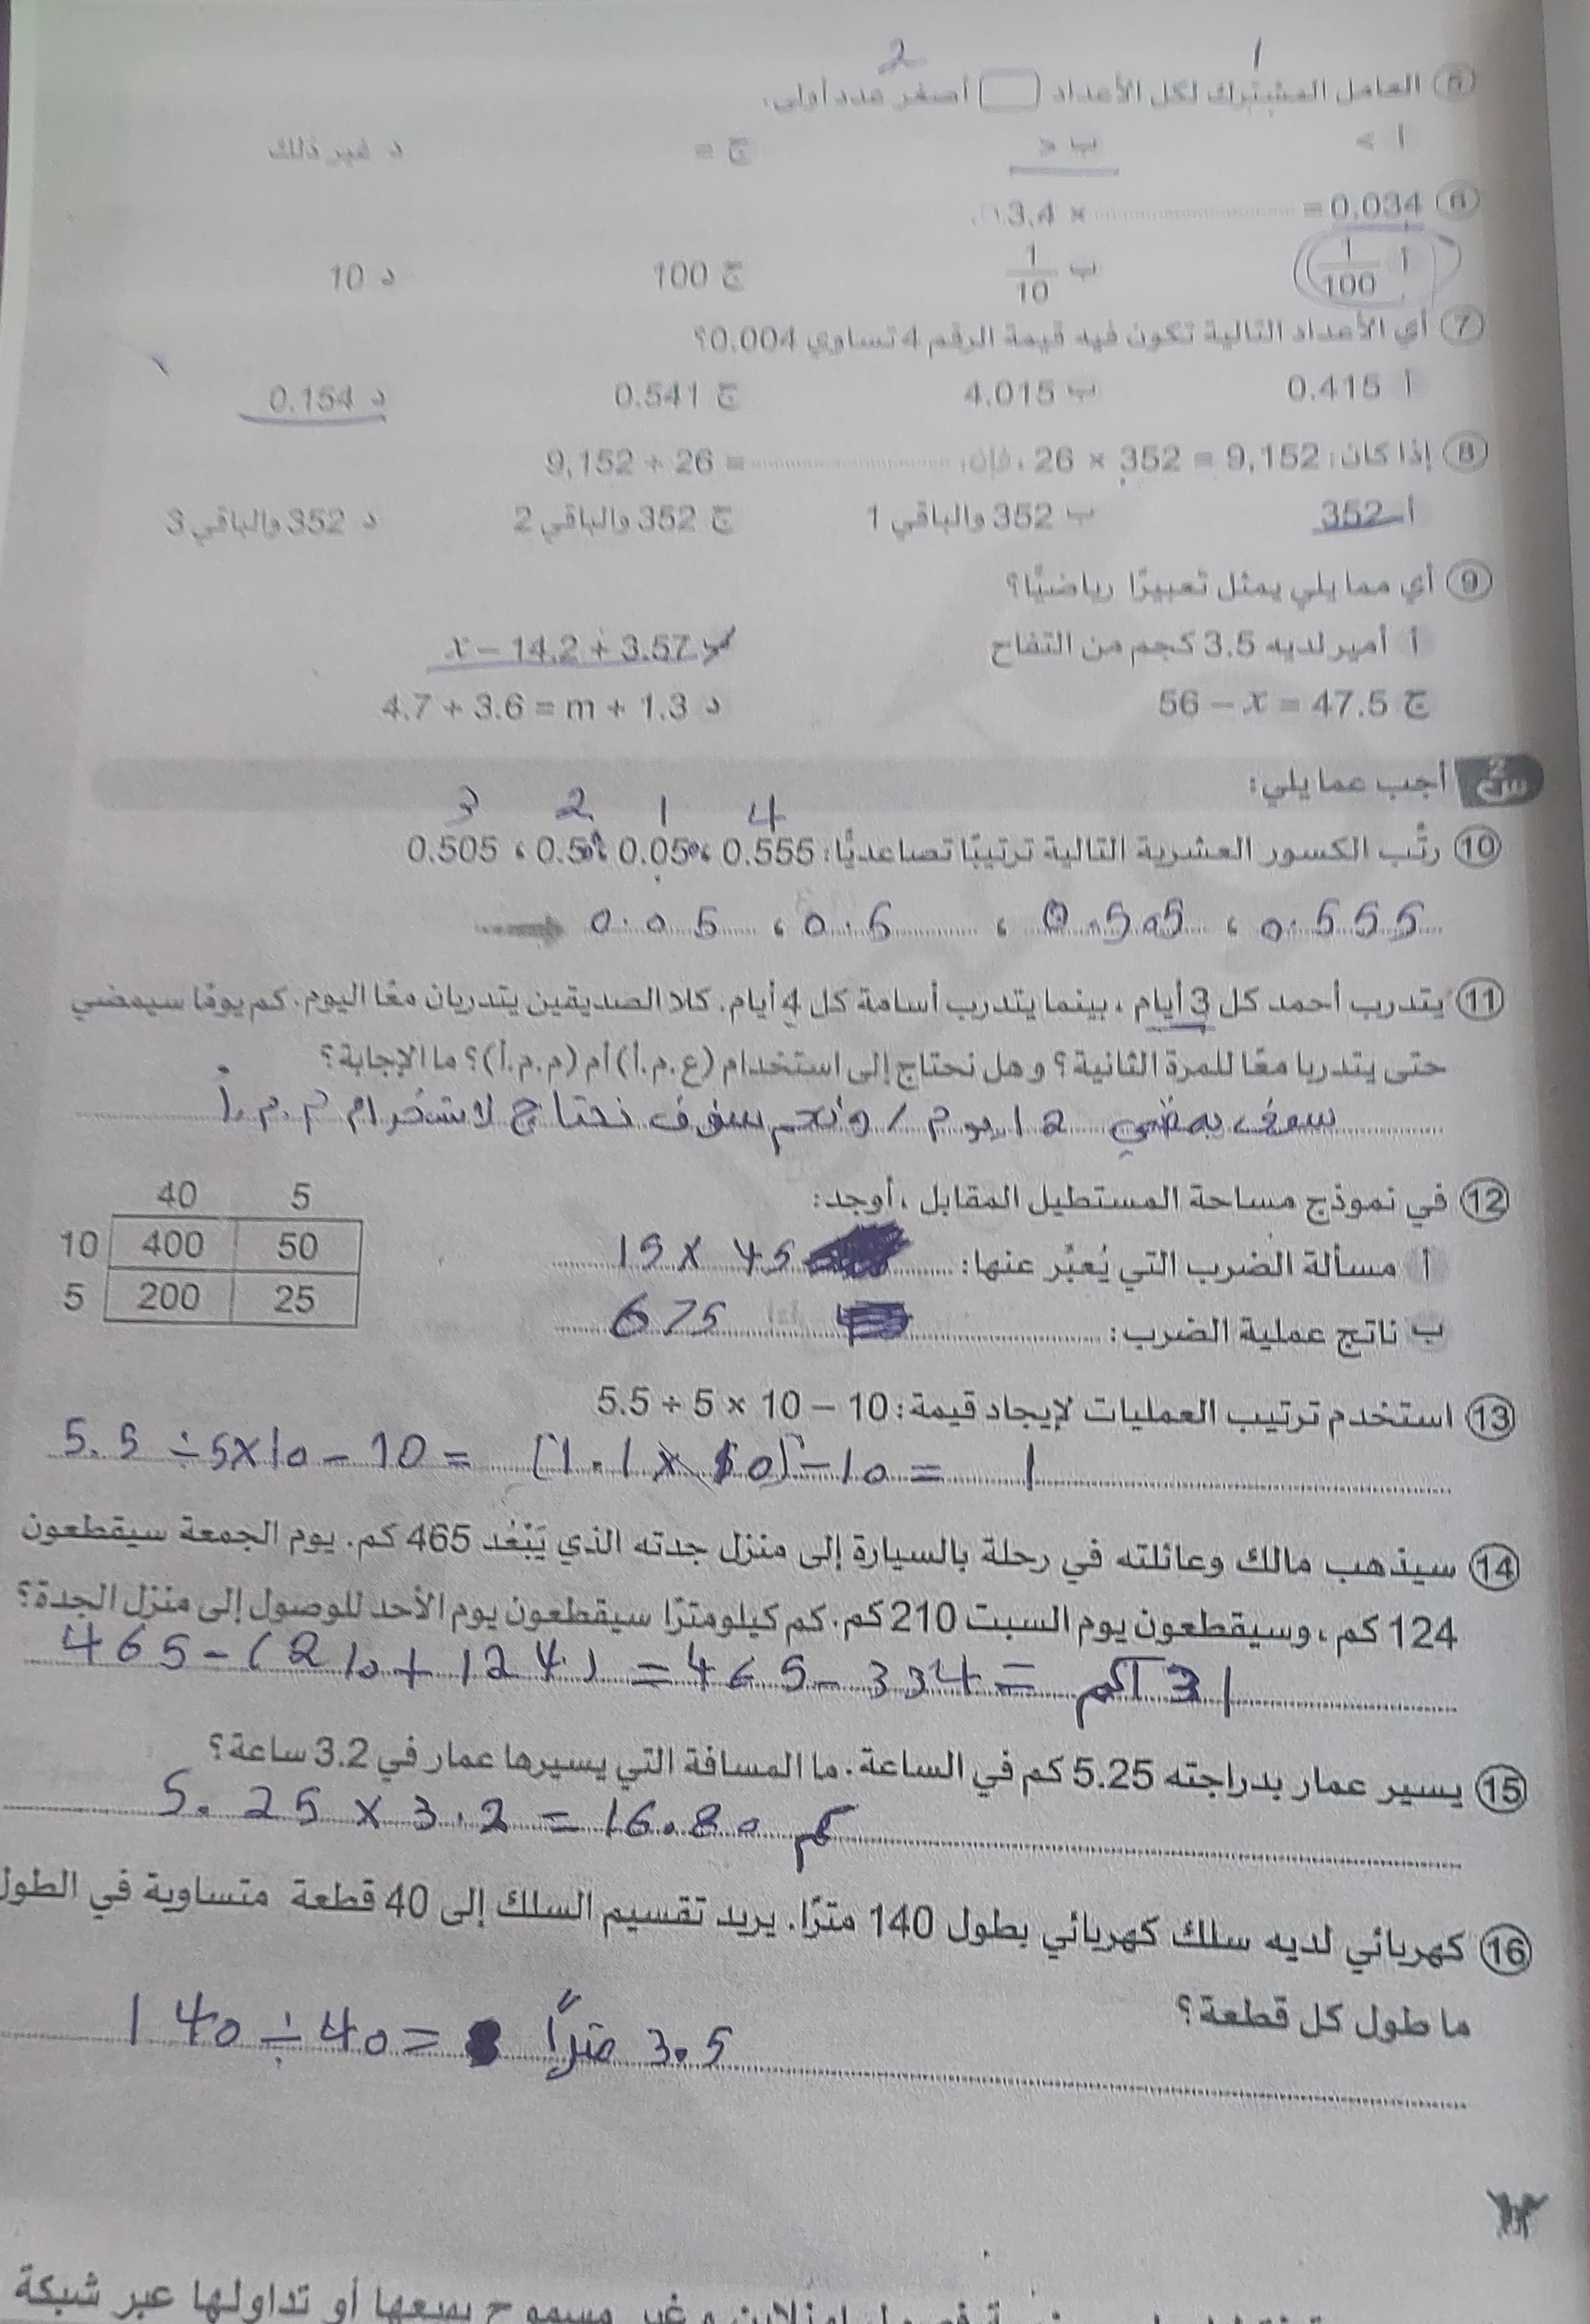 1 2
⑤ العامل المشترك لكل الأعداد □ أصغر عدد أولي.
أ > ب < ج = د غير ذلك
⑥ 0.034 = ............ × 3.4
أ 1/100 ب 1/10 ج 100 د 10
⑦ أي الأعداد التالية تكون فيه قيمة الرقم 4 تساوي 0.004؟
أ 0.415 ب 4.015 ج 0.541 د 0.154
⑧ إذا كان: 9,152 = 352 × 26 ، فإن: ............ = 26 ÷ 9,152
أ 352 ب 352 والباقي 1 ج 352 والباقي 2 د 352 والباقي 3
⑨ أي مما يلي يمثل تعبيرًا رياضيًّا؟
أ أمير لديه 3.5 كجم من التفاح ب x – 14.2 + 3.57
ج 56 – x = 47.5 د 4.7 + 3.6 = m + 1.3
س2 أجب عما يلي:
3 2 1 4
⑩ رتِّب الكسور العشرية التالية ترتيبًا تصاعديًّا: 0.555 ، 0.05 ، 0.5 ، 0.505
0.05 ، 0.5 ، 0.505 ، 0.555
⑪ يتدرب أحمد كل 3 أيام ، بينما يتدرب أسامة كل 4 أيام. كلا الصديقين يتدربان معًا اليوم. كم يومًا سيمضي
حتى يتدربا معًا للمرة الثانية؟ وهل نحتاج إلى استخدام (ع.م.أ) أم (م.م.أ)؟ ما الإجابة؟
سوف يمضي 12 يوم / ونعم سوف نحتاج لاستخدام م.م.أ
⑫ في نموذج مساحة المستطيل المقابل ، أوجد:
40 5
10 400 50
5 200 25
أ مسألة الضرب التي يُعبِّر عنها: 15 × 45
ب ناتج عملية الضرب: 675
⑬ استخدم ترتيب العمليات لإيجاد قيمة: 5.5 ÷ 5 × 10 – 10
5.5 ÷ 5 × 10 – 10 = (1.1 × 10) – 10 = 1
⑭ سيذهب مالك وعائلته في رحلة بالسيارة إلى منزل جدته الذي يَبْعُد 465 كم. يوم الجمعة سيقطعون
124 كم ، وسيقطعون يوم السبت 210 كم. كم كيلومترًا سيقطعون يوم الأحد للوصول إلى منزل الجدة؟
465 – (210 + 124) = 465 – 334 = 131 كم
⑮ يسير عمار بدراجته 5.25 كم في الساعة. ما المسافة التي يسيرها عمار في 3.2 ساعة؟
5.25 × 3.2 = 16.80 كم
⑯ كهربائي لديه سلك كهربائي بطول 140 مترًا. يريد تقسيم السلك إلى 40 قطعة متساوية في الطول
ما طول كل قطعة؟
140 ÷ 40 = 3.5 مترًا